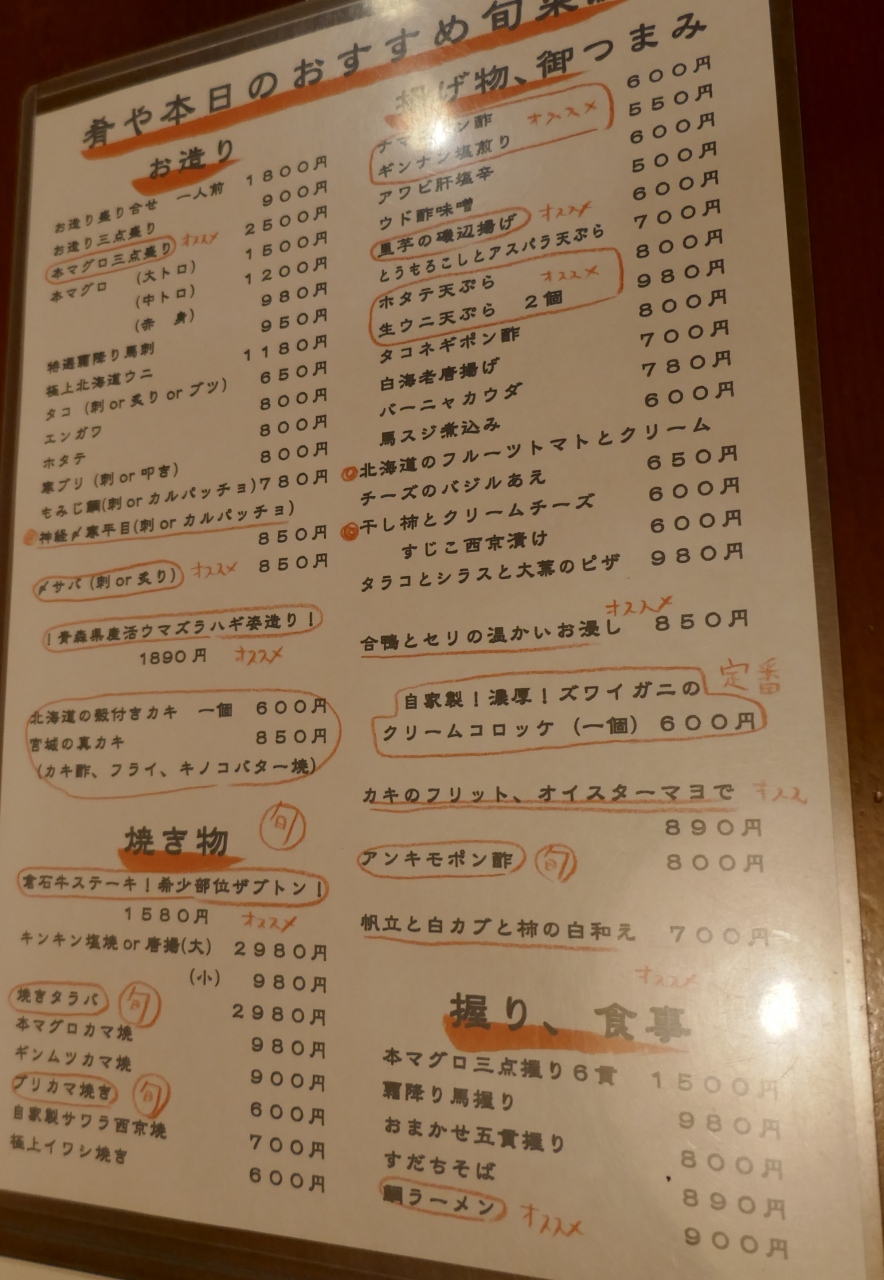 肴や本日のおすすめ旬菜
お造り
お造り盛り合せ 一人前 1800円
お造り三点盛り 900円
本マグロ三点盛り オススメ 2500円
本マグロ (大トロ) 1500円
(中トロ) 1200円
(赤 身) 980円
特選霜降り馬刺 950円
極上北海道ウニ 1180円
タコ (刺or炙りorブツ) 650円
エンガワ 800円
ホタテ 800円
寒ブリ (刺or叩き) 800円
もみじ鯛(刺orカルパッチョ)780円
神経〆寒平目(刺orカルパッチョ)
850円
〆サバ (刺or炙り) オススメ 850円
!青森県産活ウマズラハギ姿造り!
1890円 オススメ
北海道の殻付きカキ 一個 600円
宮城の真カキ 850円
(カキ酢、フライ、キノコバター焼)
焼き物 旬
倉石牛ステーキ!希少部位ザブトン!
1580円 オススメ
キンキン塩焼or唐揚(大) 2980円
(小) 980円
焼きタラバ 旬 2980円
本マグロカマ焼 980円
ギンムツカマ焼 900円
ブリカマ焼き 旬 600円
自家製サワラ西京焼 700円
極上イワシ焼き 600円
揚げ物、御つまみ
ポン酢 オススメ 600円
ギンナン塩煎り 550円
アワビ肝塩辛 600円
ウド酢味噌 500円
里芋の磯辺揚げ オススメ 600円
とうもろこしとアスパラ天ぷら 700円
ホタテ天ぷら オススメ 800円
生ウニ天ぷら 2個 980円
タコネギポン酢 800円
白海老唐揚げ 700円
バーニャカウダ 780円
馬スジ煮込み 600円
北海道のフルーツトマトとクリーム
チーズのバジルあえ 650円
干し柿とクリームチーズ 600円
すじこ西京漬け 600円
タラコとシラスと大葉のピザ 980円
オススメ
合鴨とセリの温かいお浸し 850円
定番
自家製!濃厚!ズワイガニの
クリームコロッケ (一個) 600円
カキのフリット、オイスターマヨで オスス
890円
アンキモポン酢 旬 800円
帆立と白カブと柿の白和え 700円
オススメ
握り、食事
本マグロ三点握り6貫 1500円
霜降り馬握り 980円
おまかせ五貫握り 800円
すだちそば 890円
鯛ラーメン オススメ 900円